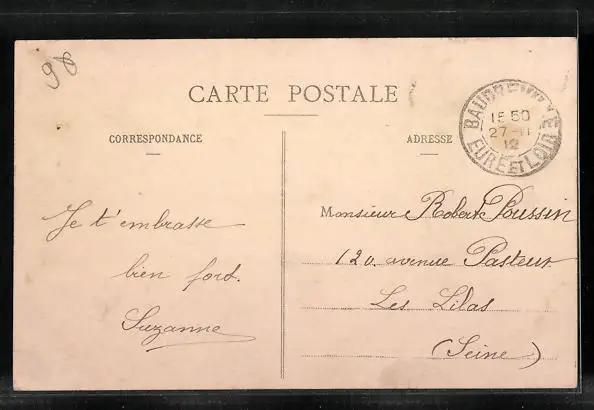 98
CARTE POSTALE
CORRESPONDANCE
ADRESSE
15 50
27-11
12
EURE ET LOIR
Je t'embrasse
bien fort.
Suzanne
Monsieur Robert Poussin
120. avenue Pasteur
Les Lilas
(Seine)